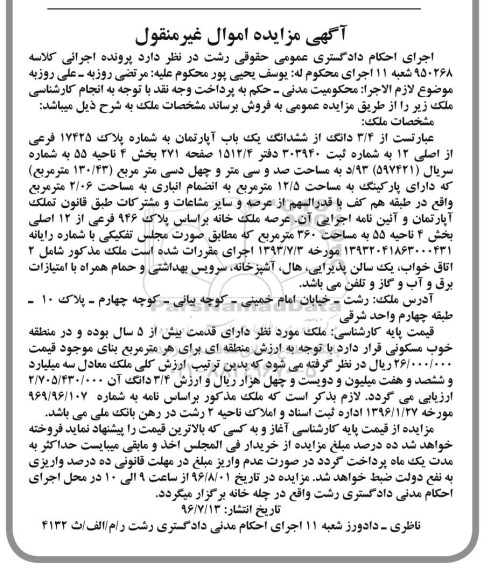 آگهی مزایده اموال غیرمنقول
اجرای احکام دادگستری عمومی حقوقی رشت در نظر دارد پرونده اجرائی کلاسه
۹۵۰۲۶۸ شعبه ۱۱ اجرای محکوم له: یوسف یحیی پور محکوم علیه: مرتضی روزبه ـ علی روزبه
موضوع لازم الاجرا: محکومیت مدنی ـ حکم به پرداخت وجه نقد با توجه به انجام کارشناسی
ملک زیر را از طریق مزایده عمومی به فروش برساند مشخصات ملک به شرح ذیل میباشد:
مشخصات ملک:
عبارتست از ۳/۴ دانگ از ششدانگ یک باب آپارتمان به شماره پلاک ۱۷۴۲۵ فرعی
از اصلی ۱۲ به شماره ثبت ۳۰۳۹۴۰ دفتر ۱۵۱۲/۴ صفحه ۲۷۱ بخش ۴ ناحیه ۵۵ به شماره
سریال (۵۹۷۴۲۱) ۹۳/د به مساحت صد و سی متر و چهل دسی متر مربع (۱۳۰/۴۳) مترمربع)
که دارای پارکینگ به مساحت ۱۲/۵ مترمربع به انضمام انباری به مساحت ۲/۰۶ مترمربع
واقع در طبقه هم کف با قدرالسهم از عرصه و سایر مشاعات و مشترکات طبق قانون تملک
آپارتمان و آئین نامه اجرایی آن. عرصه ملک خانه براساس پلاک ۹۴۶ فرعی از ۱۲ اصلی
بخش ۴ ناحیه ۵۵ به مساحت ۳۶۰ مترمربع که مطابق صورت مجلس تفکیکی با شماره رایانه
۱۳۹۳۲۰۴۱۸۶۳۰۰۰۴۳۱ مورخه ۱۳۹۳/۷/۳ اجرای مقررات شده است ملک مذکور شامل ۲
اتاق خواب، یک سالن پذیرایی، هال، آشپزخانه، سرویس بهداشتی و حمام همراه با امتیازات
برق و آب و گاز و تلفن می باشد.
آدرس ملک: رشت ـ خیابان امام خمینی ـ کوچه بیانی ـ کوچه چهارم ـ پلاک ۱۰ ـ
طبقه چهارم واحد شرقی
قیمت پایه کارشناسی: ملک مورد نظر دارای قدمت بیش از ۵ سال بوده و در منطقه
خوب مسکونی قرار دارد با توجه به ارزش منطقه ای برای هر مترمربع بنای موجود قیمت
۲۶/۰۰۰/۰۰۰ ریال در نظر گرفته می شود که بدین ترتیب ارزش کلی ملک معادل سه میلیارد
و ششصد و هفت میلیون و دویست و چهل هزار ریال و ارزش ۳/۴ دانگ آن ۲/۷۰۵/۴۳۰/۰۰۰
ارزیابی می گردد. لازم بذکر است که ملک مذکور براساس نامه به شماره ۹۶۹/۹۶/۱۰۷
مورخه ۱۳۹۶/۱/۲۷ اداره ثبت اسناد و املاک ناحیه ۲ رشت در رهن بانک ملی می باشد.
مزایده از قیمت پایه کارشناسی آغاز و به کسی که بالاترین قیمت را پیشنهاد نماید فروخته
خواهد شد ده درصد مبلغ مزایده از خریدار فی المجلس اخذ و مابقی میبایست حداکثر به
مدت یک ماه پرداخت گردد در صورت عدم واریز مبلغ در مهلت قانونی ده درصد واریزی
به نفع دولت ضبط خواهد شد. مزایده در تاریخ ۹۶/۸/۰۱ از ساعت ۹ الی ۱۰ در محل اجرای
احکام مدنی دادگستری رشت واقع در چله خانه برگزار میگردد.
تاریخ انتشار: ۹۶/۷/۱۳
ناظری ـ دادورز شعبه ۱۱ اجرای احکام مدنی دادگستری رشت ر/م/الف/ث ۴۱۳۲